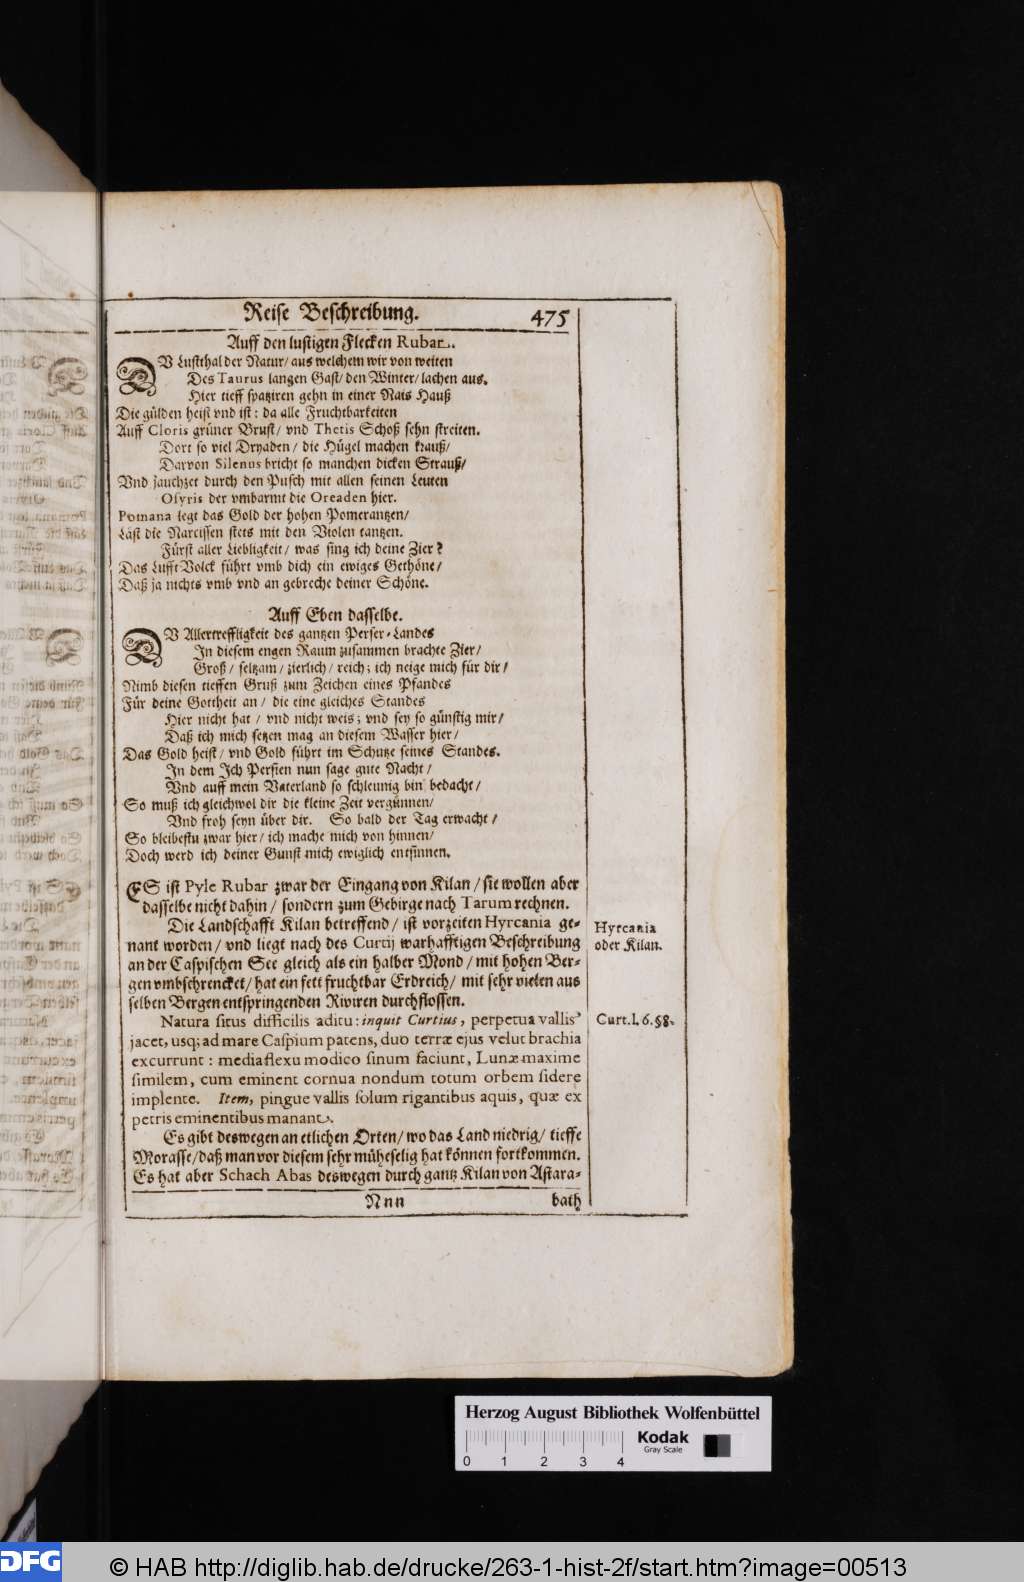 Reise Beschreibung. 475
Auff den lustigen Flecken Rubar.
DU Lustthal der Natur/ aus welchem wir von weiten
Des Taurus langen Gast/ den Winter/ lachen aus.
Hier tieff spatziren gehn in einer Nais Hauß
Die gülden heist vnd ist: da alle Fruchtbarkeiten
Auff Cloris grüner Brust/ vnd Thetis Schoß sehn streiten.
Dort so viel Dryaden/ die Hügel machen krauß/
Darvon Silenus bricht so manchen dicken Strauß/
Vnd jauchzet durch den Pusch mit allen seinen Leuten
Osyris der vmbarmt die Oreaden hier.
Pomana legt das Gold der hohen Pomerantzen/
Läst die Narcissen stets mit den Violen tantzen.
Fürst aller Liebligkeit/ was sing ich deine Zier?
Das Lufft Volck führt vmb dich ein ewiges Gethöne/
Daß ja nichts vmb vnd an gebreche deiner Schöne.
Auff Eben dasselbe.
DU Allertreffligkeit des gantzen Perser-Landes
In diesem engen Raum zusammen brachte Zier/
Groß/ seltzam/ zierlich/ reich; ich neige mich für dir/
Nimb diesen tieffen Gruß zum Zeichen eines Pfandes
Für deine Gottheit an/ die eine gleiches Standes
Hier nicht hat/ vnd nicht weis; vnd sey so günstig mir/
Daß ich mich setzen mag an diesem Wasser hier/
Das Gold heist/ vnd Gold führt im Schutze seines Standes.
In dem Ich Persien nun sage gute Nacht/
Vnd auff mein Vaterland so schleunig bin bedacht/
So muß ich gleichwol dir die kleine Zeit vergünnen/
Vnd froh seyn über dir. So bald der Tag erwacht/
So bleibestu zwar hier/ ich mache mich von hinnen/
Doch werd ich deiner Gunst mich ewiglich entsinnen.
ES ist Pyle Rubar zwar der Eingang von Kilan/ sie wollen aber
dasselbe nicht dahin/ sondern zum Gebirge nach Tarum rechnen.
Die Landschafft Kilan betreffend/ ist vorzeiten Hyrcania ge-
nant worden/ vnd liegt nach des Curtij warhafftigen Beschreibung
an der Caspischen See gleich als ein halber Mond/ mit hohen Ber-
gen vmbschrencket/ hat ein fett fruchtbar Erdreich/ mit sehr vielen aus
selben Bergen entspringenden Riviren durchflossen.
Hyrcania
oder Kilan.
Natura situs difficilis aditu: inquit Curtius, perpetua vallis
jacet, usq; ad mare Caspium patens, duo terræ ejus velut brachia
excurrunt: media flexu modico sinum faciunt, Lunæ maxime
similem, cum eminent cornua nondum totum orbem sidere
implente. Item, pingue vallis solum rigantibus aquis, quæ ex
petris eminentibus manant.
Curt. l. 6. §8.
Es gibt deswegen an etlichen Orten/ wo das Land niedrig/ tieffe
Morasse/ daß man vor diesem sehr müheselig hat können fortkommen.
Es hat aber Schach Abas deswegen durch gantz Kilan von Astara-
Nnn bath
Herzog August Bibliothek Wolfenbüttel
0 1 2 3 4
Kodak
Gray Scale
DFG
© HAB http://diglib.hab.de/drucke/263-1-hist-2f/start.htm?image=00513